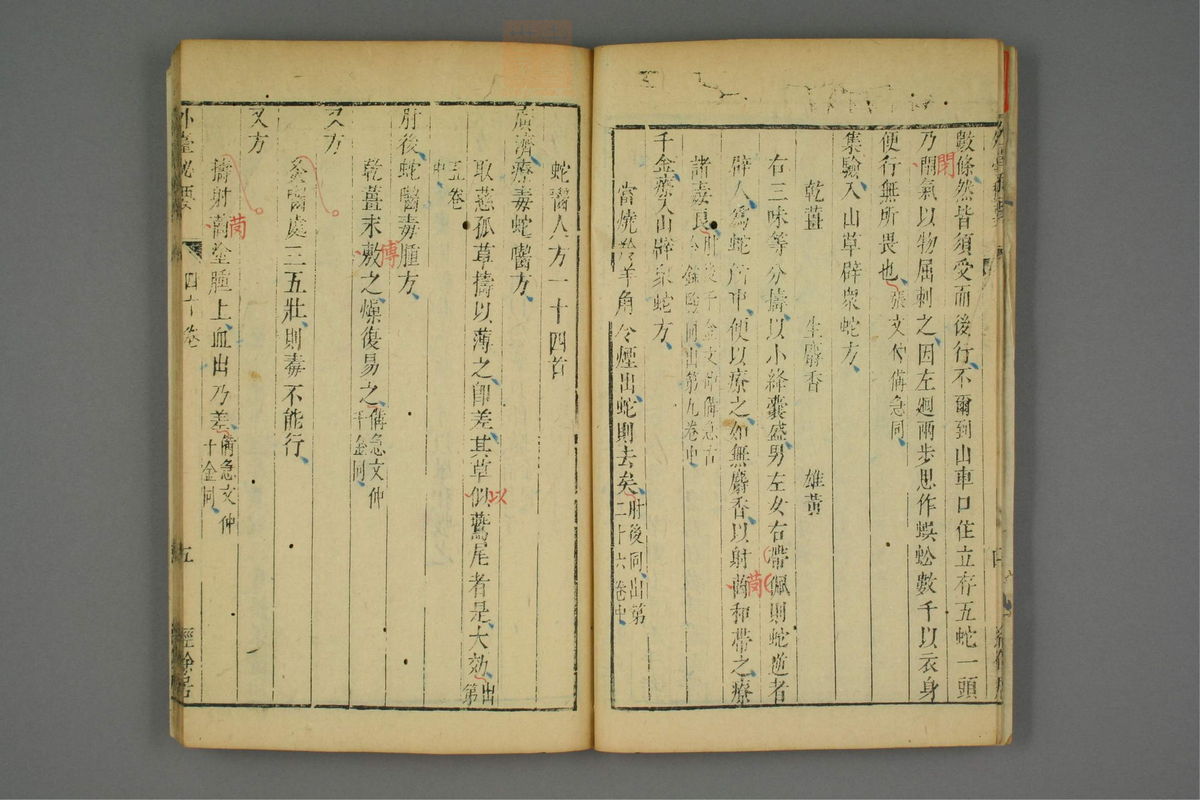 數條然皆須受而後行不爾到山車口住立存五蛇一頭
乃閉氣以物屈刺之因左廻兩步思作蜈蚣數千以衣身
便行無所畏也張文仲備急同
集驗入山草辟衆蛇方
乾薑 生麝香 雄黃
右三味等分擣以小絳囊盛男左女右帶佩則蛇逆走者
辟人爲蛇所中便以療之如無麝香以射茵和帶之療
諸毒良肘後千金文仲備急古今錄驗同出第九卷中
千金療入山辟衆蛇方
當燒羚羊角令煙出蛇則去矣肘後同出第二十六卷中
蛇嚙人方一十四首
廣濟療毒蛇嚙方
取慈孤草擣以薄之卽差其草似鷰尾者是大効出第
五卷中
肘後蛇嚙毒腫方
乾薑末敷之燥復易之備急文仲千金同
又方
灸嚙處三五壯則毒不能行
又方
擣射茵塗腫上血出乃差備急文仲千金同
外臺秘要 四十卷 五 經餘居
閉
茼
以
傅
茼